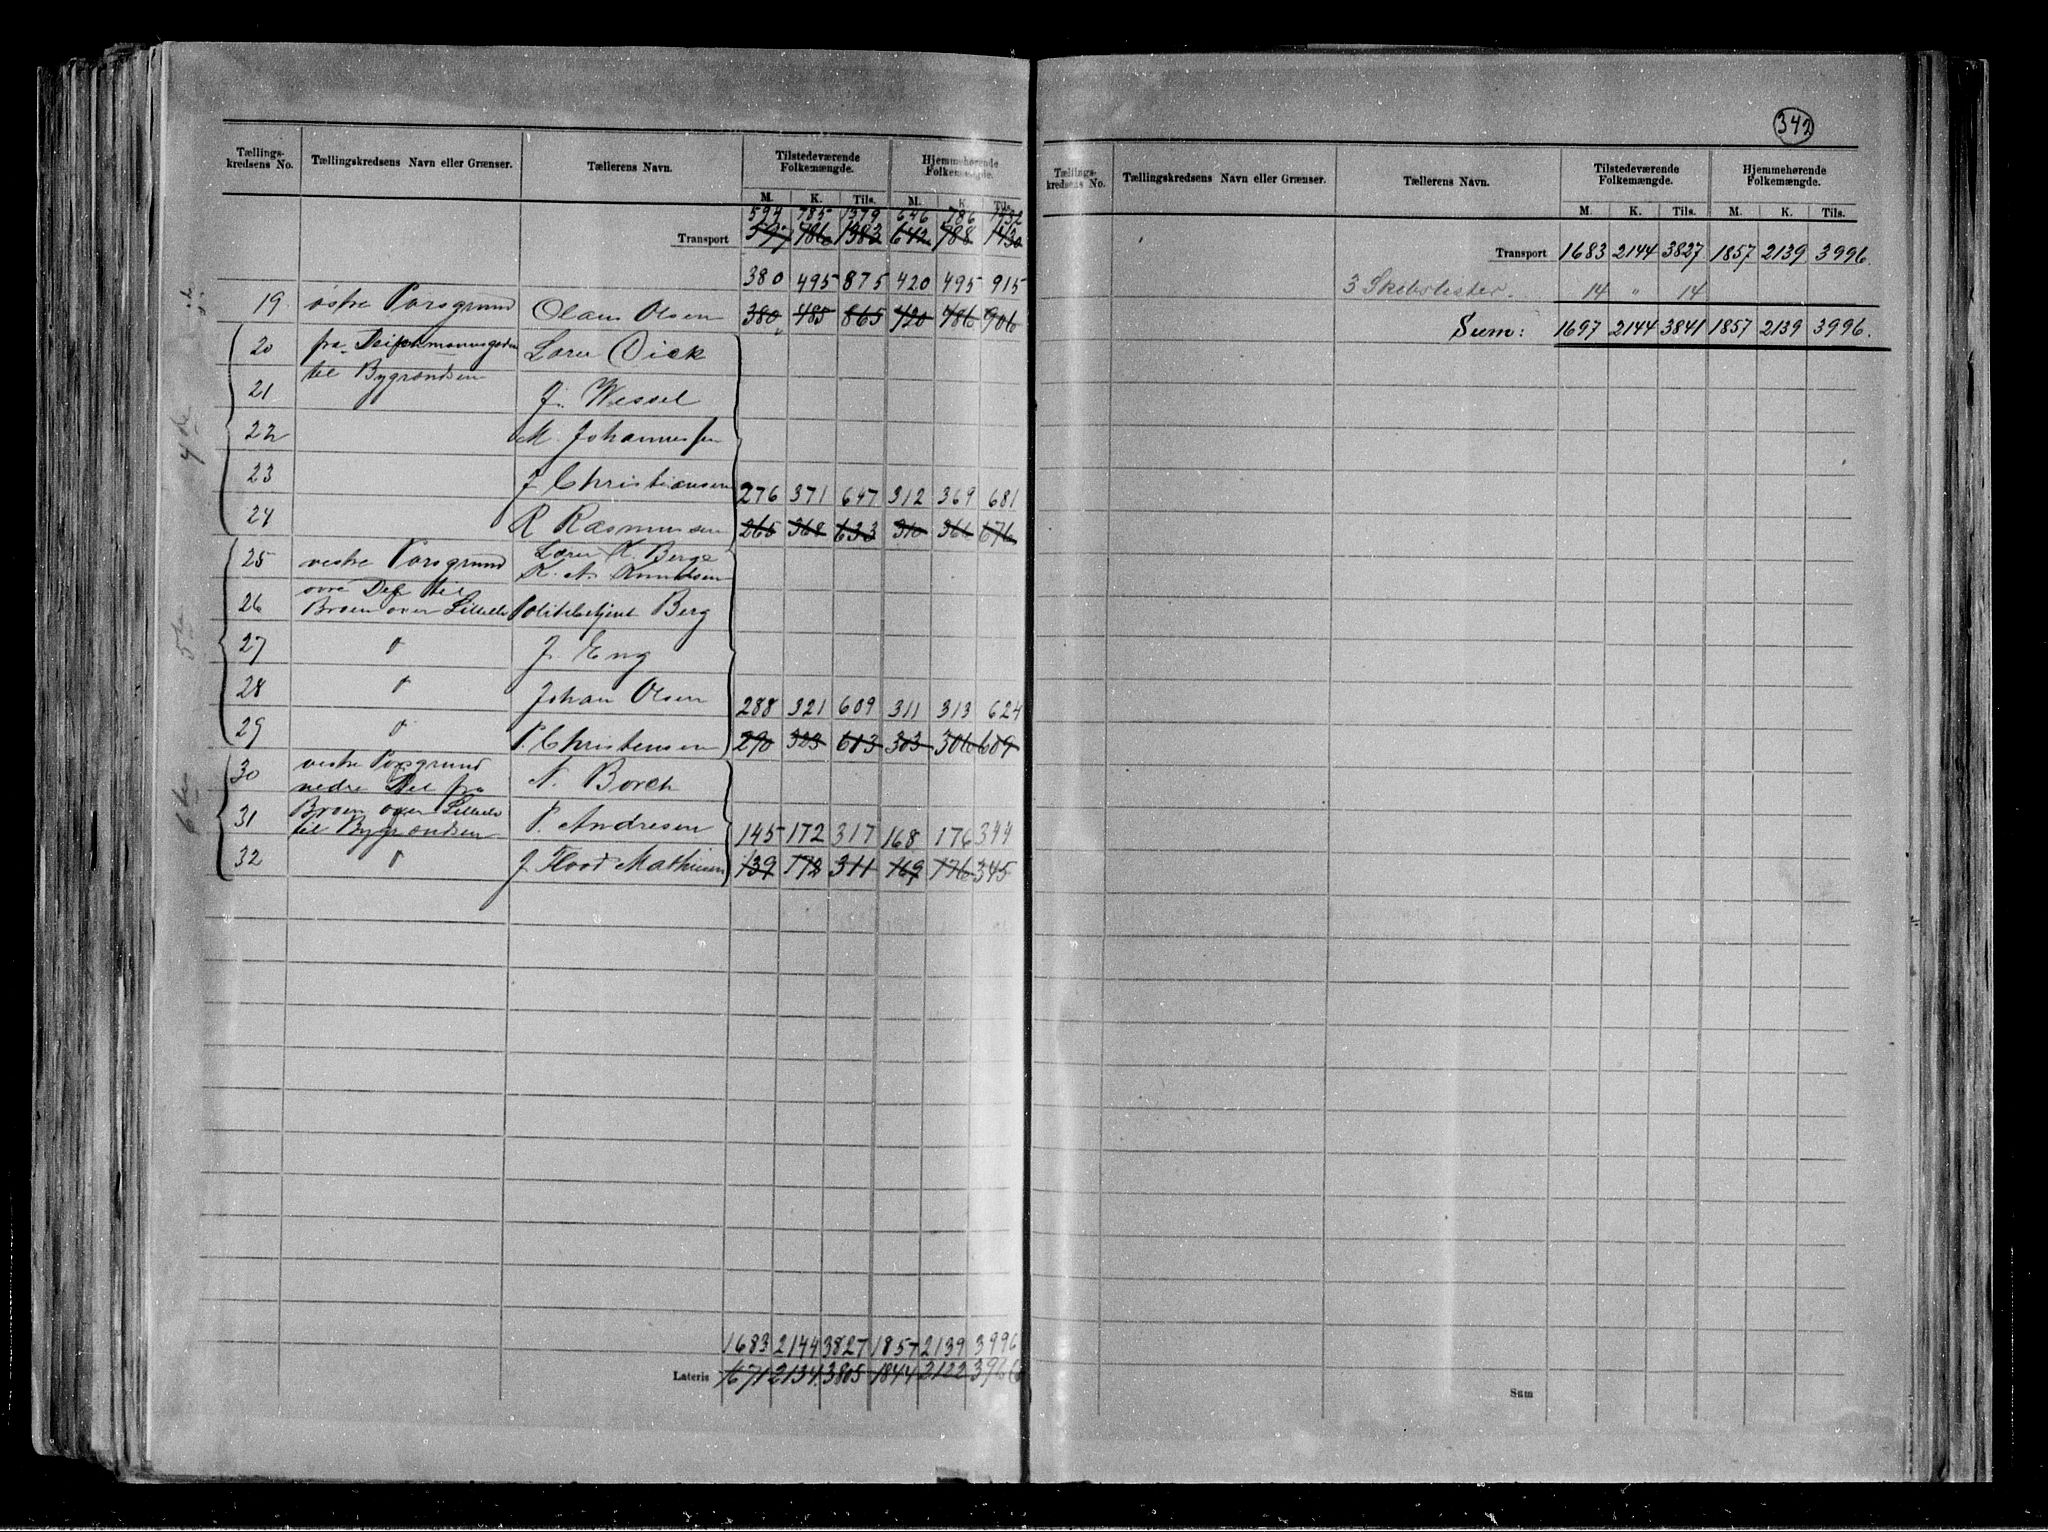 342
Tællings-kredsens No. Tællingskredsens Navn eller Grænser. Tællerens Navn. Tilstedeværende Folkemængde. Hjemmehørende Folkemængde.
M. K. Tils. M. K. Tils.
594 785 1379 646 786 1432
Transport 597 786 1383 642 788 1430
380 495 875 420 495 915
19. østre Porsgrund Olaus Olsen 380 485 865 420 486 906
20 fra Deichmannsgaden Lærer Dick
til Bygrændsen
21 J. Wessel
22 M. Johannessen
23 J Christiansen 276 371 647 312 369 681
24 R Rasmussen 265 368 633 310 366 676
4de
25 vestre Porsgrund Lærer K. Berge
K. A. Knudsen
øvre Del til
26 Broen over Lilleelv Politibetjent Berg
27 " J. Eng
28 " Johan Olsen 288 321 609 311 313 624
29 " P. Christensen 290 323 613 303 306 609
5te
30 vestre Porsgrund N. Borch
nedre Del fra
31 Broen over Lilleelv P. Andresen 145 172 317 168 176 344
til Bygrændsen
32 " J. Flood Mathiesen 139 172 311 169 176 345
6te
1683 2144 3827 1857 2139 3996
Lateris 1671 2134 3805 1844 2122 3966
Tællings-kredsens No. Tællingskredsens Navn eller Grænser. Tællerens Navn. Tilstedeværende Folkemængde. Hjemmehørende Folkemængde.
M. K. Tils. M. K. Tils.
Transport 1683 2144 3827 1857 2139 3996.
3 Skibslister. 14 " 14
Sum: 1697 2144 3841 1857 2139 3996.
Sum